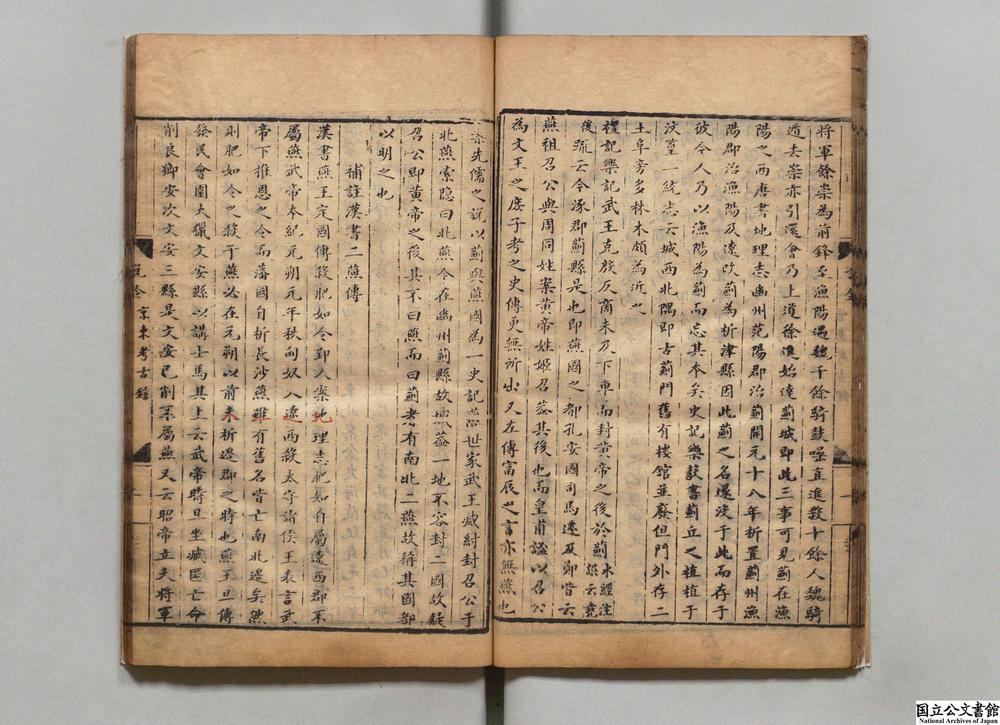 將軍餘崇為前鋒至漁陽遇魏千餘騎鼓噪直進殺十餘人魏騎
遁去崇亦引還會乃上道徐進始達薊城即此三事可見薊在漁
陽之西唐書地理志幽州范陽郡治薊開元十八年析置薊州漁
陽郡治漁陽及遼改薊為析津縣因此薊之名遂沒于此而存于
彼今人乃以漁陽為薊而忘其本矣史記樂毅書薊丘之植植于
汶篁一統志云城西北隅即古薊門舊有樓館並廢但門外存二
土阜旁多林木頗為近之
禮記樂記武王克殷反商未及下車而封黃帝之後於薊水經注梁云堯
後疏云今涿郡薊縣是也即燕國之都孔安國司馬遷及鄭皆云
燕祖召公與周同姓案黃帝姓姬召葢其後也而皇甫謐以召公
為文王之庶子考之史傳更無所出又左傳富辰之言亦無燕也
先儒之說以薊與燕國為一史記燕世家武王滅紂封召公于
北燕索隐曰北燕今在幽州薊縣故城葢一地不容封二國故疑
召公即黃帝之後其不曰燕而曰薊者有南北二燕故稱其國都
以明之也
補註漢書二燕傳
漢書燕王定國傳殺肥如令郢人案地理志肥如自屬遼西郡不
屬燕武帝本紀元朔元年秋匈奴入遼西殺太守諸侯王表言武
帝下推恩之令而藩國自析長沙燕雖有舊名皆亡南北邊矣然
則肥如令之殺于燕必在元朔以前未析邊郡之時也燕王旦傳
發民會圍大獵文安縣以講士馬其上云武帝時旦坐臧匿亡命
削良鄉安次文安三縣是文安已削不屬燕又云昭帝立大將軍
京東考古錄
一
国立公文書館
National Archives of Japan